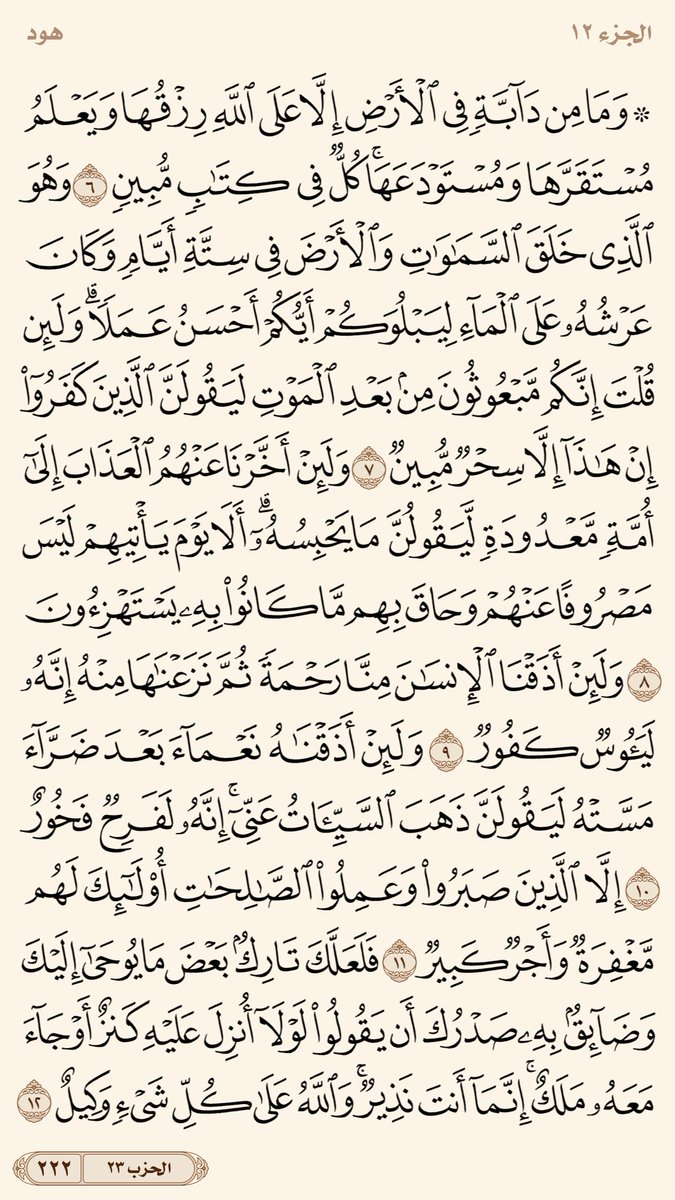 الجزء ١٢ هود
۞ وَمَا مِن دَآبَّةٖ فِي ٱلۡأَرۡضِ إِلَّا عَلَى ٱللَّهِ رِزۡقُهَا وَيَعۡلَمُ
مُسۡتَقَرَّهَا وَمُسۡتَوۡدَعَهَاۚ كُلّٞ فِي كِتَٰبٖ مُّبِينٖ ٦ وَهُوَ
ٱلَّذِي خَلَقَ ٱلسَّمَٰوَٰتِ وَٱلۡأَرۡضَ فِي سِتَّةِ أَيَّامٖ وَكَانَ
عَرۡشُهُۥ عَلَى ٱلۡمَآءِ لِيَبۡلُوَكُمۡ أَيُّكُمۡ أَحۡسَنُ عَمَلٗاۗ وَلَئِن
قُلۡتَ إِنَّكُم مَّبۡعُوثُونَ مِنۢ بَعۡدِ ٱلۡمَوۡتِ لَيَقُولَنَّ ٱلَّذِينَ كَفَرُوٓاْ
إِنۡ هَٰذَآ إِلَّا سِحۡرٞ مُّبِينٞ ٧ وَلَئِنۡ أَخَّرۡنَا عَنۡهُمُ ٱلۡعَذَابَ إِلَىٰٓ
أُمَّةٖ مَّعۡدُودَةٖ لَّيَقُولُنَّ مَا يَحۡبِسُهُۥٓۗ أَلَا يَوۡمَ يَأۡتِيهِمۡ لَيۡسَ
مَصۡرُوفًا عَنۡهُمۡ وَحَاقَ بِهِم مَّا كَانُواْ بِهِۦ يَسۡتَهۡزِءُونَ
٨ وَلَئِنۡ أَذَقۡنَا ٱلۡإِنسَٰنَ مِنَّا رَحۡمَةٗ ثُمَّ نَزَعۡنَٰهَا مِنۡهُ إِنَّهُۥ
لَيَـُٔوسٞ كَفُورٞ ٩ وَلَئِنۡ أَذَقۡنَٰهُ نَعۡمَآءَ بَعۡدَ ضَرَّآءَ
مَسَّتۡهُ لَيَقُولَنَّ ذَهَبَ ٱلسَّيِّـَٔاتُ عَنِّيٓۚ إِنَّهُۥ لَفَرِحٞ فَخُورٌ
١٠ إِلَّا ٱلَّذِينَ صَبَرُواْ وَعَمِلُواْ ٱلصَّٰلِحَٰتِ أُوْلَٰٓئِكَ لَهُم
مَّغۡفِرَةٞ وَأَجۡرٞ كَبِيرٞ ١١ فَلَعَلَّكَ تَارِكُۢ بَعۡضَ مَا يُوحَىٰٓ إِلَيۡكَ
وَضَآئِقُۢ بِهِۦ صَدۡرُكَ أَن يَقُولُواْ لَوۡلَآ أُنزِلَ عَلَيۡهِ كَنزٌ أَوۡ جَآءَ
مَعَهُۥ مَلَكٌۚ إِنَّمَآ أَنتَ نَذِيرٞۚ وَٱللَّهُ عَلَىٰ كُلِّ شَيۡءٖ وَكِيلٌ ١٢
الحزب ٢٣ ٢٢٢